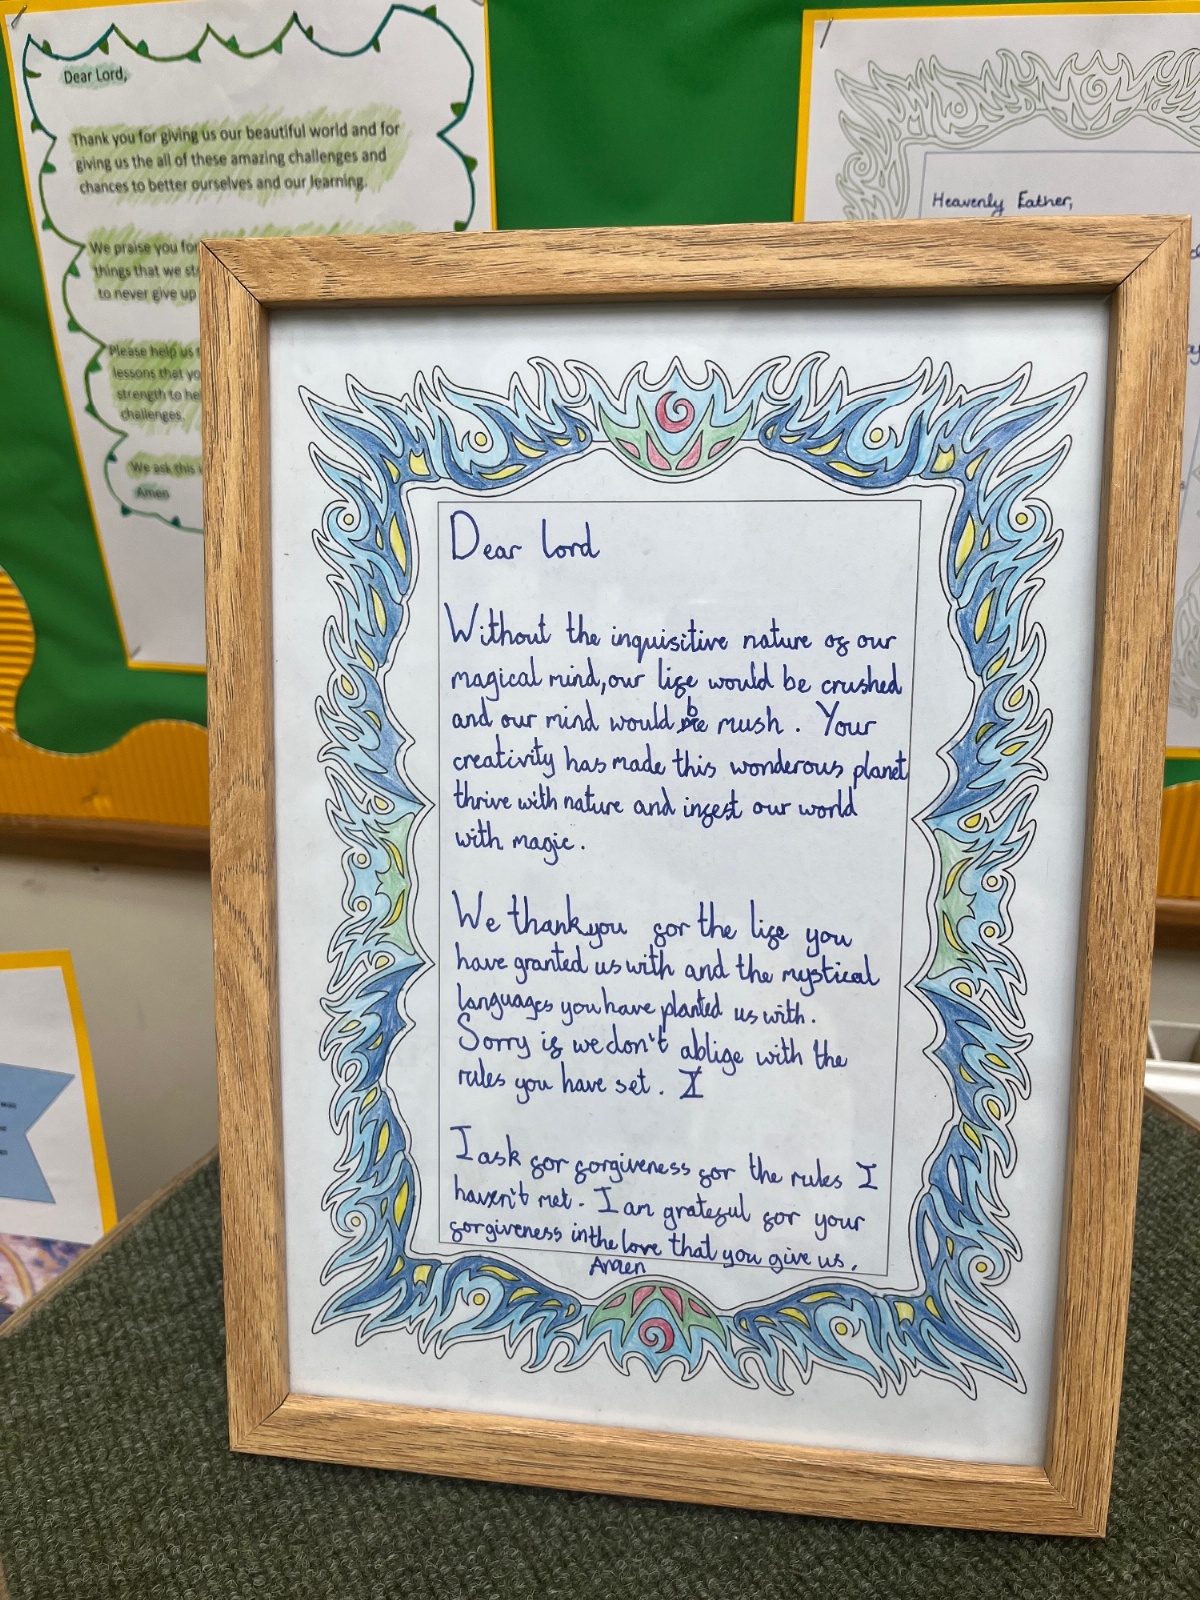 Dear Lord,
Thank you for giving us our beautiful world and for
giving us the all of these amazing challenges and
chances to better ourselves and our learning.
We praise you for
things that we
to never give up
Please help us
lessons that
strength to
challenges.
We ask this
Amen
Heavenly Father,
Dear lord
Without the inquisitive nature of our
magical mind, our life would be crushed
and our mind would be mush. Your
creativity has made this wonderous planet
thrive with nature and infest our world
with magic.
We thank you for the life you
have granted us with and the mystical
languages you have planted us with.
Sorry if we don't ablige with the
rules you have set. I
I ask for forgiveness for the rules I
haven't met. I am grateful for your
forgiveness in the love that you give us.
Amen